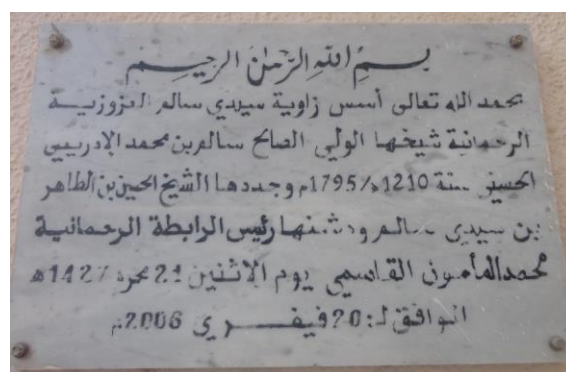 بسم الله الرحمن الرحيم
بحمد الله تعالى أسس زاوية سيدي سالم العزوزية
الرحمانية شيخها الولي الصالح سالم بن محمد الإدريسي
الحسني سنة 1210ه/1795م وجددها الشيخ الحسين بن الطاهر
بن سيدي سالم ودشنها رئيس الرابطة الرحمانية
محمد المأمون القاسمي يوم الاثنين 21 محرم 1427ه
الموافق لـ: 20 فيفري 2006م